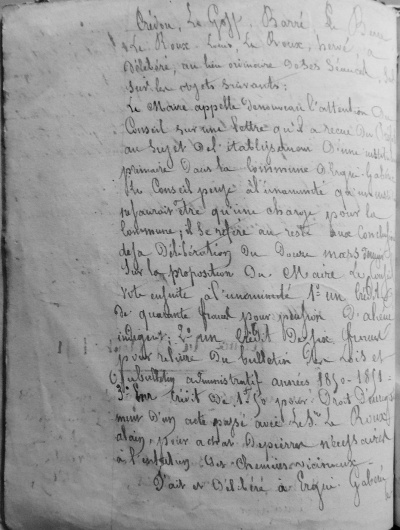 Crédou, Le Goff, Barré, Le Burn
Le Roux Louis, Le Roux, hervé, a
Délibéré, au lieu ordinaire de ses Séances,
Sur les objets suivants:
Le Maire appelle denouveau l'attention Du
Conseil sur une lettre qu'il a recue Du
au sujet De l'établissement D'une
primaire Dans la Commune d'Ergué-Gabéric
Le Conseil pense à l'unanimité qu'une
ne saurait être qu'une charge pour la
Commune; il se réfère au reste aux
de sa Délibération Du Douze mars
Sur la proposition Du Maire Le Conseil
Vote ensuite à l'unanimité 1° un Crédit
De quarante francs pour pension D'aliéné
indigent; 2° un Crédit De six francs
pour reliure Du bulletin Des Lois et
administratif années 1850-1851=
3° un Crédit De 1f 50 pour Droit D'enregis
ment D'un acte passé avec le Sr Le Roux
alain, pour achat De pierres nécessaires
à l'entretien Des Chemins vicinaux
Fait et Délibéré à Ergué-Gabéric